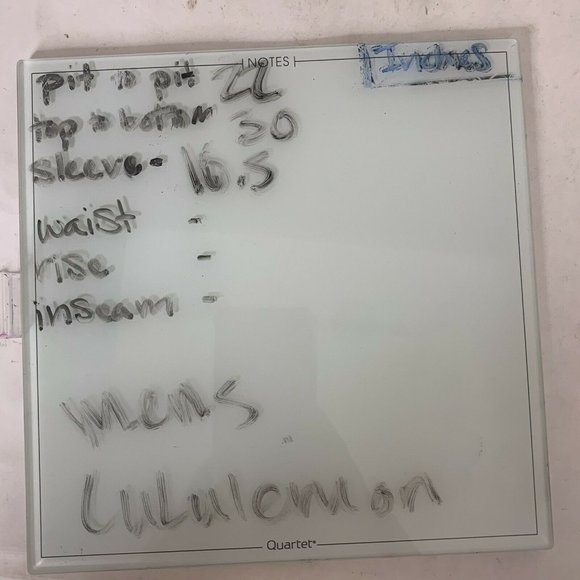 NOTES
Inches
pit to pit 22
top to bottom 30
sleeve - 16.5
waist -
rise -
inseam -
mens
Lululemon
Quartet®